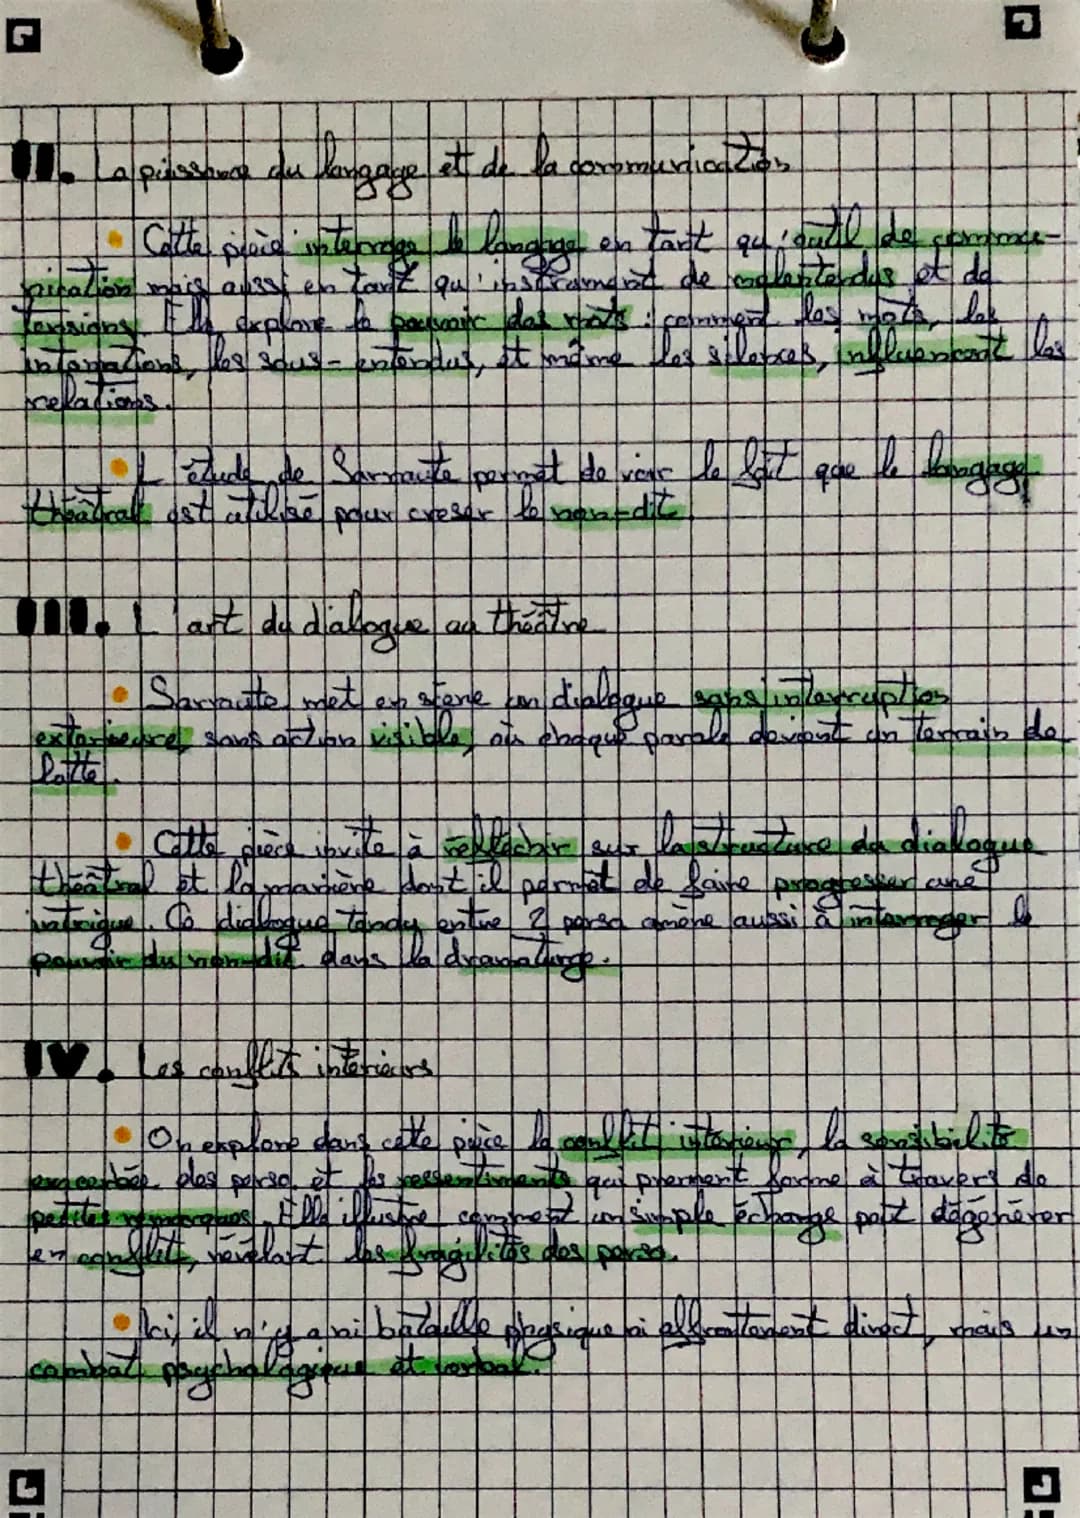 II. La puissance du langage et de la communication
• Cette pièce interroge le langage en tant qu'outil de commu-
nication mais aussi en tant qu'instrument de malentendus et de
tensions. Elle explore le pouvoir des mots : comment les mots, les
intonations, les sous-entendus, et même les silences, influencent les
relations.
• L'étude de Sarraute permet de voir le fait que le langage
théâtral est utilisé pour creser le non-dit.
III. L'art du dialogue au théâtre
• Sarraute met en scène un dialogue sans interruption
exterieure, sans action visible, où chaque parole devient un terrain de
lutte.
• Cette pièce invite à réfléchir sur la structure du dialogue
théâtral et la manière dont il permet de faire progresser une
intrigue. Ce dialogue tendu entre 2 perso amène aussi à interroger le
pouvoir du non-dit dans la dramaturge.
IV. Les conflits intérieurs
• On explore dans cette pièce le conflit intérieur, la sensibilité
exacerbée des perso et les ressentiments qui prennent forme à travers de
petites remarques. Elle illustre comment un simple échange peut dégénérer
en conflit, révélant les fragilités des perso.
• Ici, il n'y a ni bataille physique ni affrontement direct, mais un
combat psychologique et verbal.